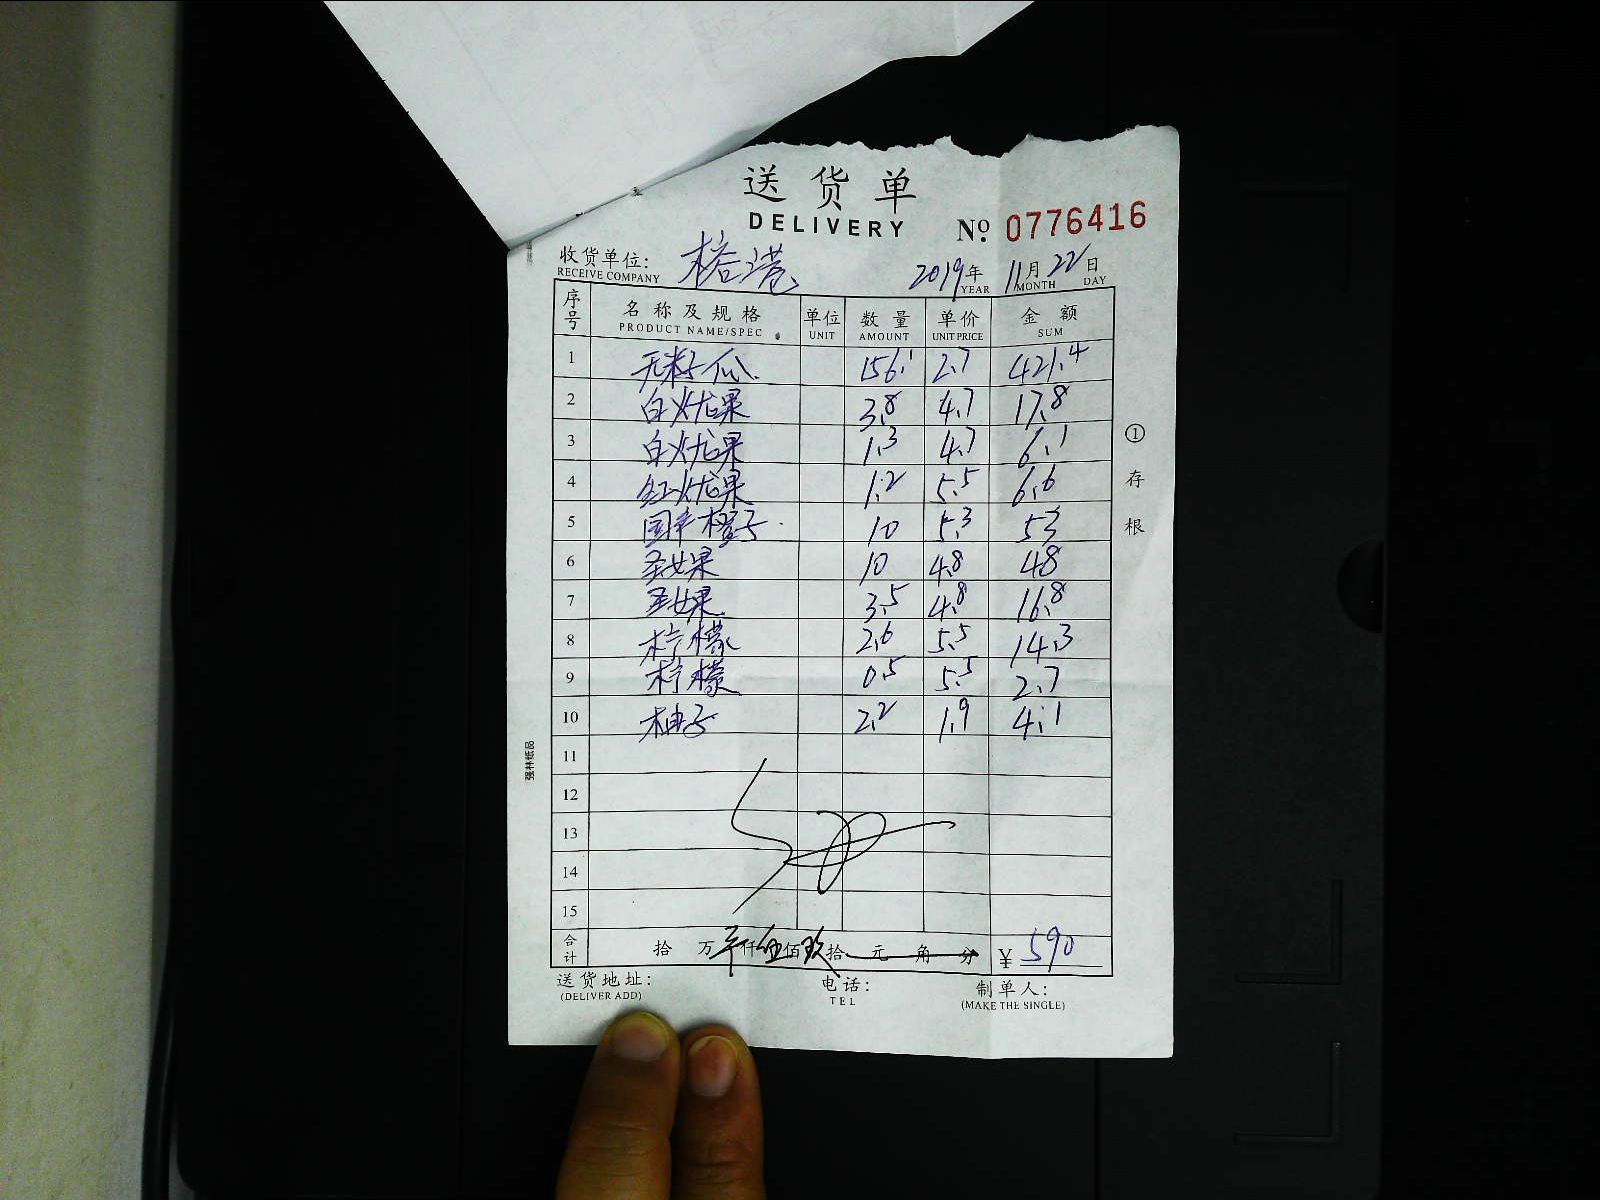 送货单
DELIVERY
№ 0776416
收货单位: 榕港
RECEIVE COMPANY
2019年 11月 22日
YEAR MONTH DAY
序号 名称及规格 单位 数量 单价 金额
PRODUCT NAME/SPEC UNIT AMOUNT UNIT PRICE SUM
1 无籽瓜 156.1 2.7 421.4
2 白火龙果 3.8 4.7 17.8
3 白火龙果 1.3 4.7 6.1
4 红火龙果 1.2 5.5 6.6
5 国丰橙子 10 5.3 53
6 圣女果 10 4.8 48
7 圣女果 3.5 4.8 16.8
8 柠檬 2.6 5.5 14.3
9 柠檬 0.5 5.5 2.7
10 柚子 2.2 1.9 4.1
11
12
13
14
15
合计 拾 万 仟 伍 佰 玖 拾 元 角 分 ¥ 590
送货地址: 电话: 制单人:
(DELIVER ADD) TEL (MAKE THE SINGLE)
①存根
强林纸品